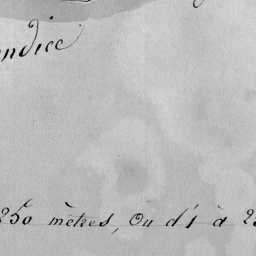 ndice
250 mètres, Ou d'1 à 2